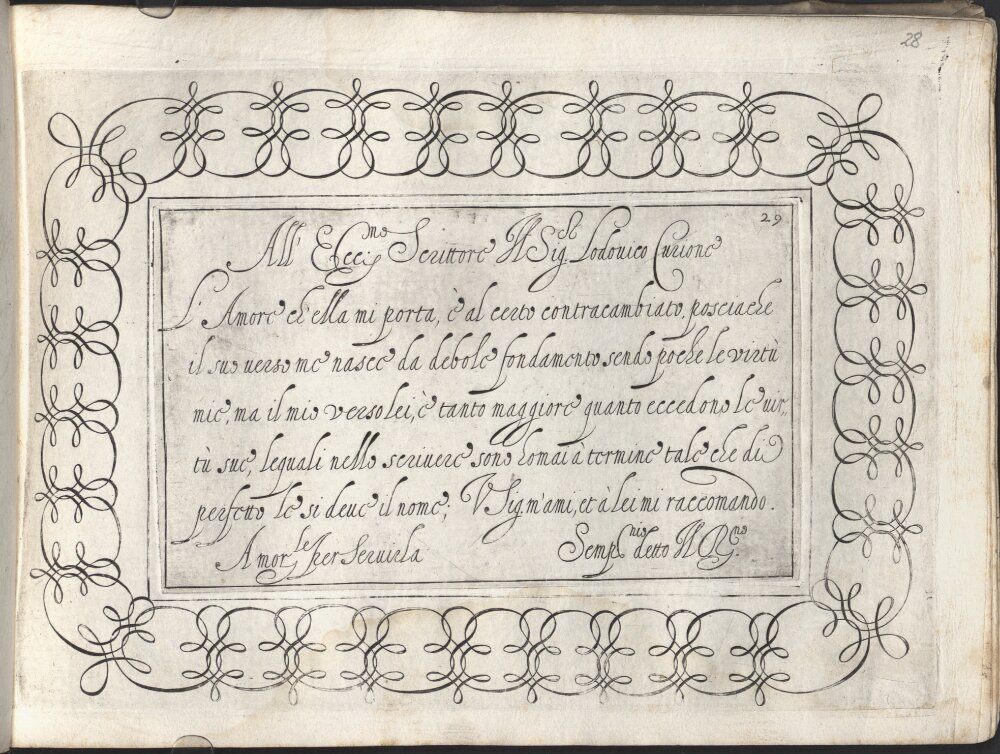 28
29
All' Ecc.mo Scrittore Il Sig. Lodovico Curione
L'Amore ch'ella mi porta, è al certo contracambiato, posciache
il suo verso me nasce da debole fondamento sendo poche le virtù
mie, ma il mio verso lei, è tanto maggiore quanto eccedono le uir,,
tù sue, lequali nello scriuere sono homai à termine tale che di
perfetto le si deue il nome; V Sig. m'ami, et à lei mi raccomando.
Amor.le per seruirla
Semp.nio detto Il